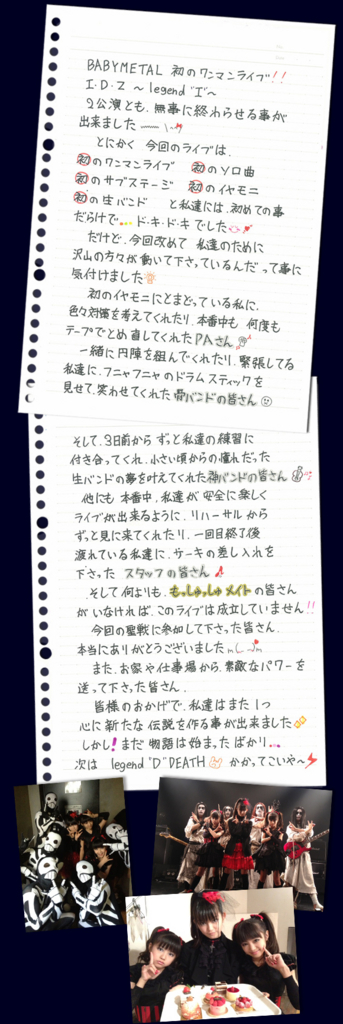 BABYMETAL 初のワンマンライブ!!
I・D・Z ～ legend "I" ～
2公演とも、無事に終わらせる事が
出来ました
とにかく 今回のライブは、
初のワンマンライブ 初のソロ曲
初のサブステージ 初のイヤモニ
初の生バンド と私達には、初めての事
だらけで… ド・キ・ド・キ でした
だけど、今回改めて 私達のために
沢山の方々が動いて下さっているんだ って事に
気付けました
初のイヤモニにとまどっている私に、
色々対策を考えてくれたり、本番中も 何度も
テープでとめ直してくれた PAさん
一緒に円陣を組んでくれたり、緊張してる
私達に、フニャフニャのドラムスティックを
見せて、笑わせてくれた 骨バンドの皆さん
そして、3日前から ずっと私達の練習に
付き合ってくれ、小さい頃からの憧れだった
生バンドの夢を叶えてくれた 神バンドの皆さん
他にも 本番中、私達が 安全に楽しく
ライブが出来るように、リハーサルから
ずっと見に来てくれたり、一回目終了後
疲れている私達に、ケーキの差し入れを
下さった スタッフの皆さん
そして 何よりも、もっしゅっしゅ メイト の皆さん
がいなければ、このライブは成立していません!!
今回の聖戦に参加して下さった皆さん、
本当にありがとうございました m(_ _)m
また、お家や仕事場から、素敵なパワーを
送って下さった皆さん、
皆様のおかげで、私達はまた1つ
心に新たな伝説を作る事が出来ました
しかし! まだ物語は始まったばかり…
次は legend "D" DEATH かかってこいや～